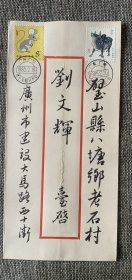 璧山縣八塘鄉老石村
劉文輝 臺啓
廣州市建設大馬路西十街
8